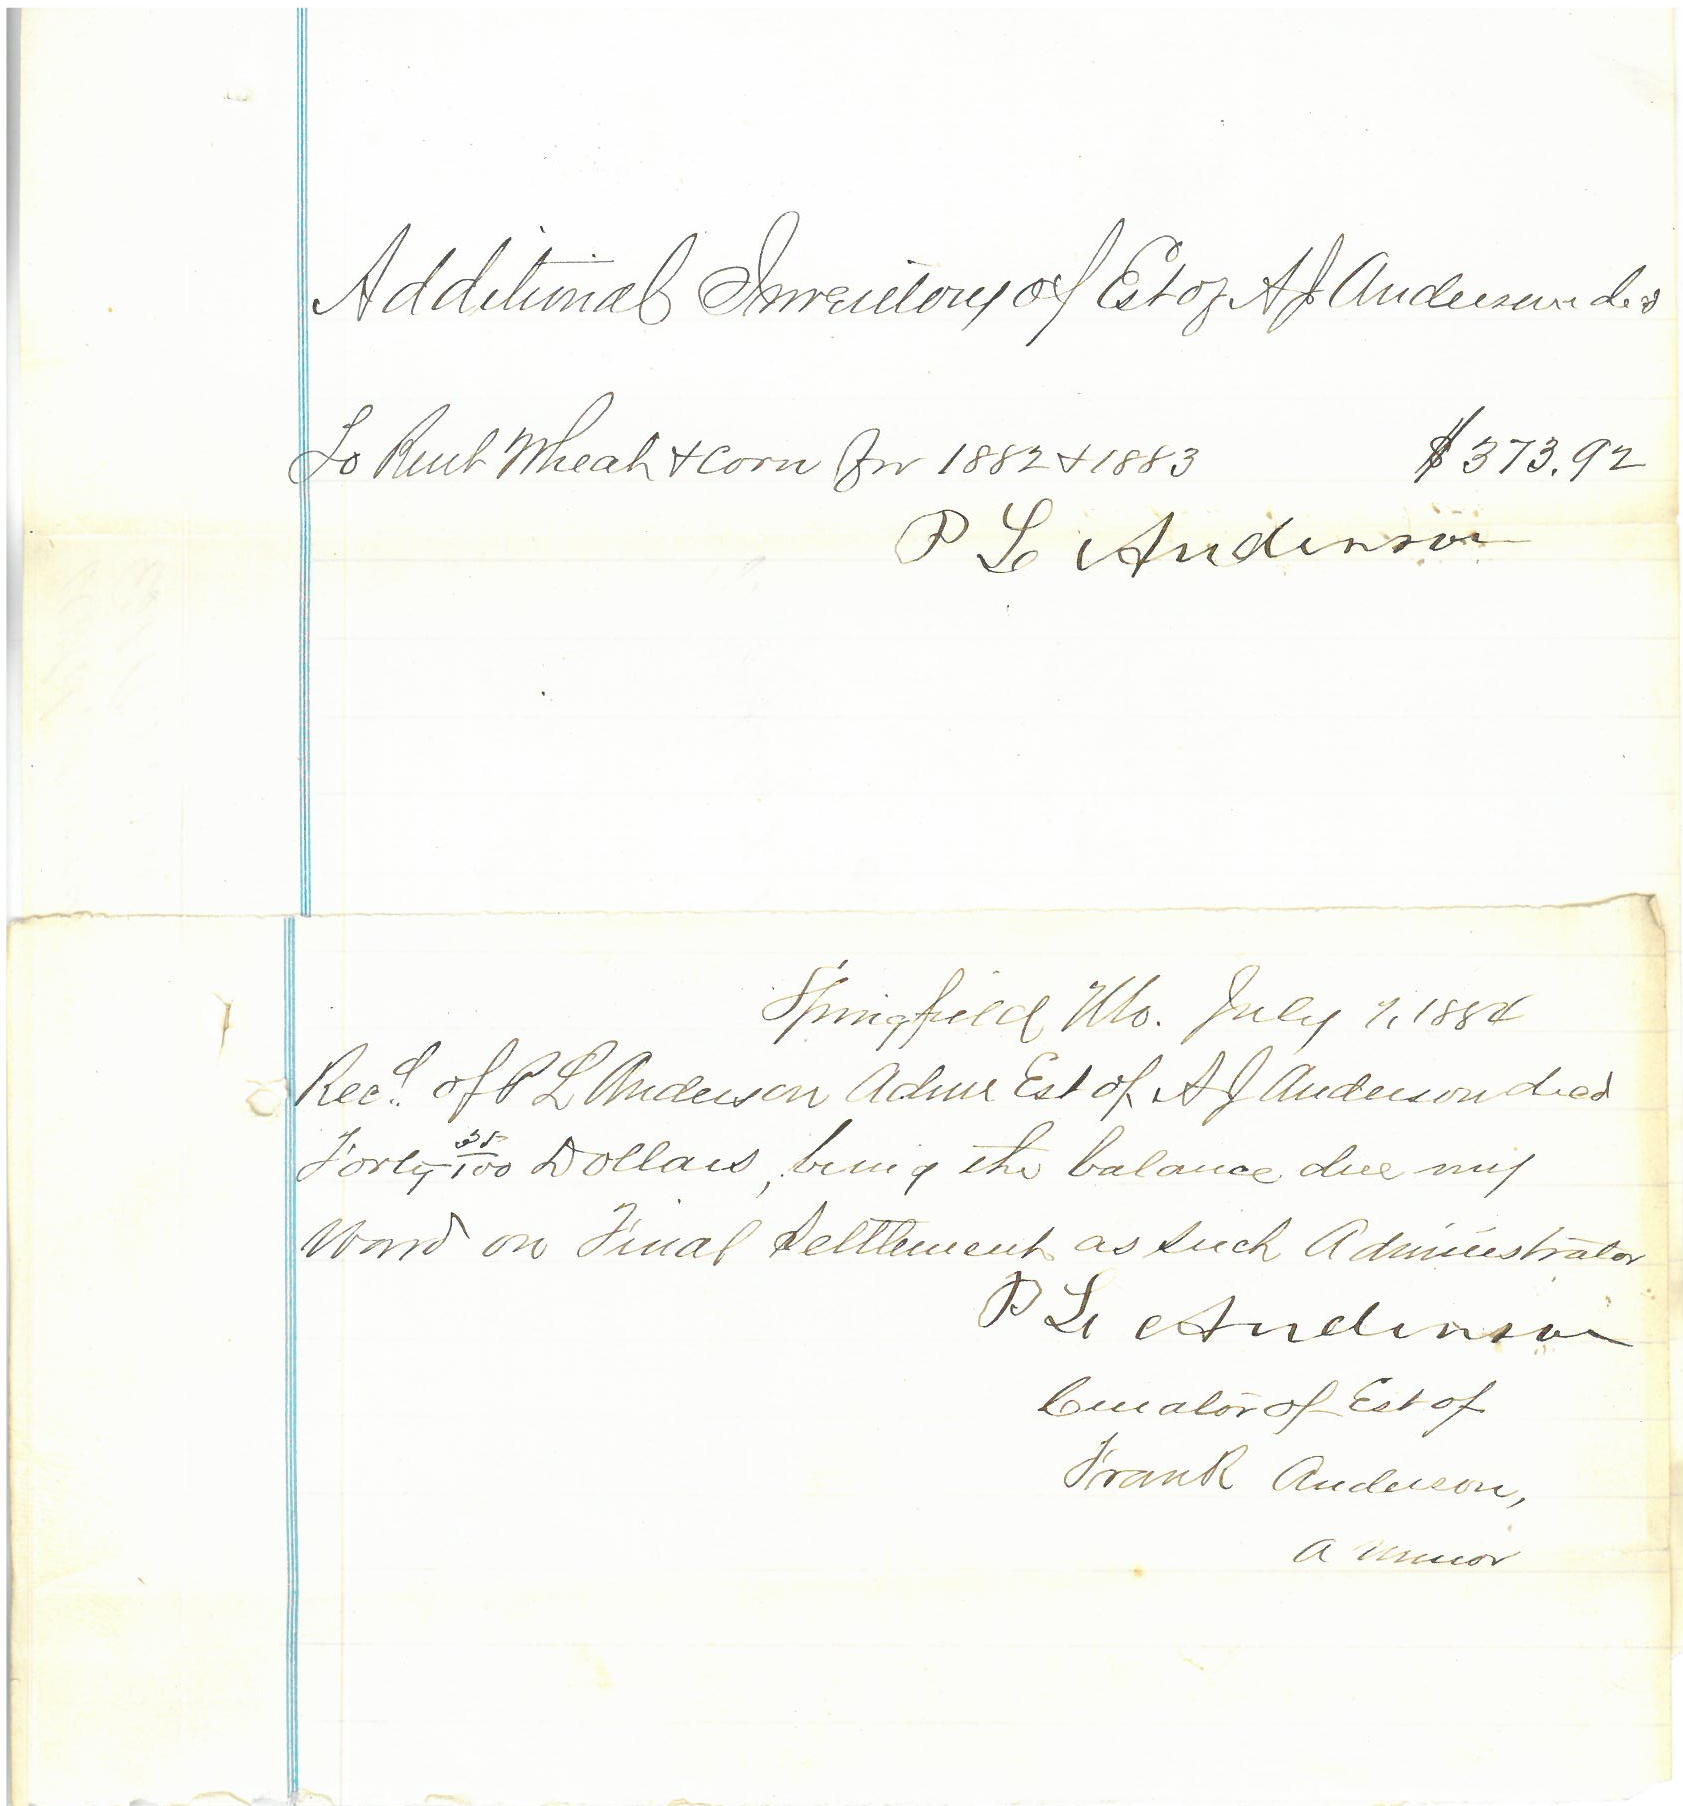 Additional Inventory of Est of A J Anderson decd
To Rent Wheat & Corn for 1882 & 1883 $373.92
P L Anderson
Springfield Mo. July 7, 1884
Recd. of P L Anderson Admr Est of A J Anderson decd
Forty 35/100 Dollars, being the balance due my
Ward on Final Settlement as such Administrator
P L Anderson
Curator of Est of
Frank Anderson,
a minor